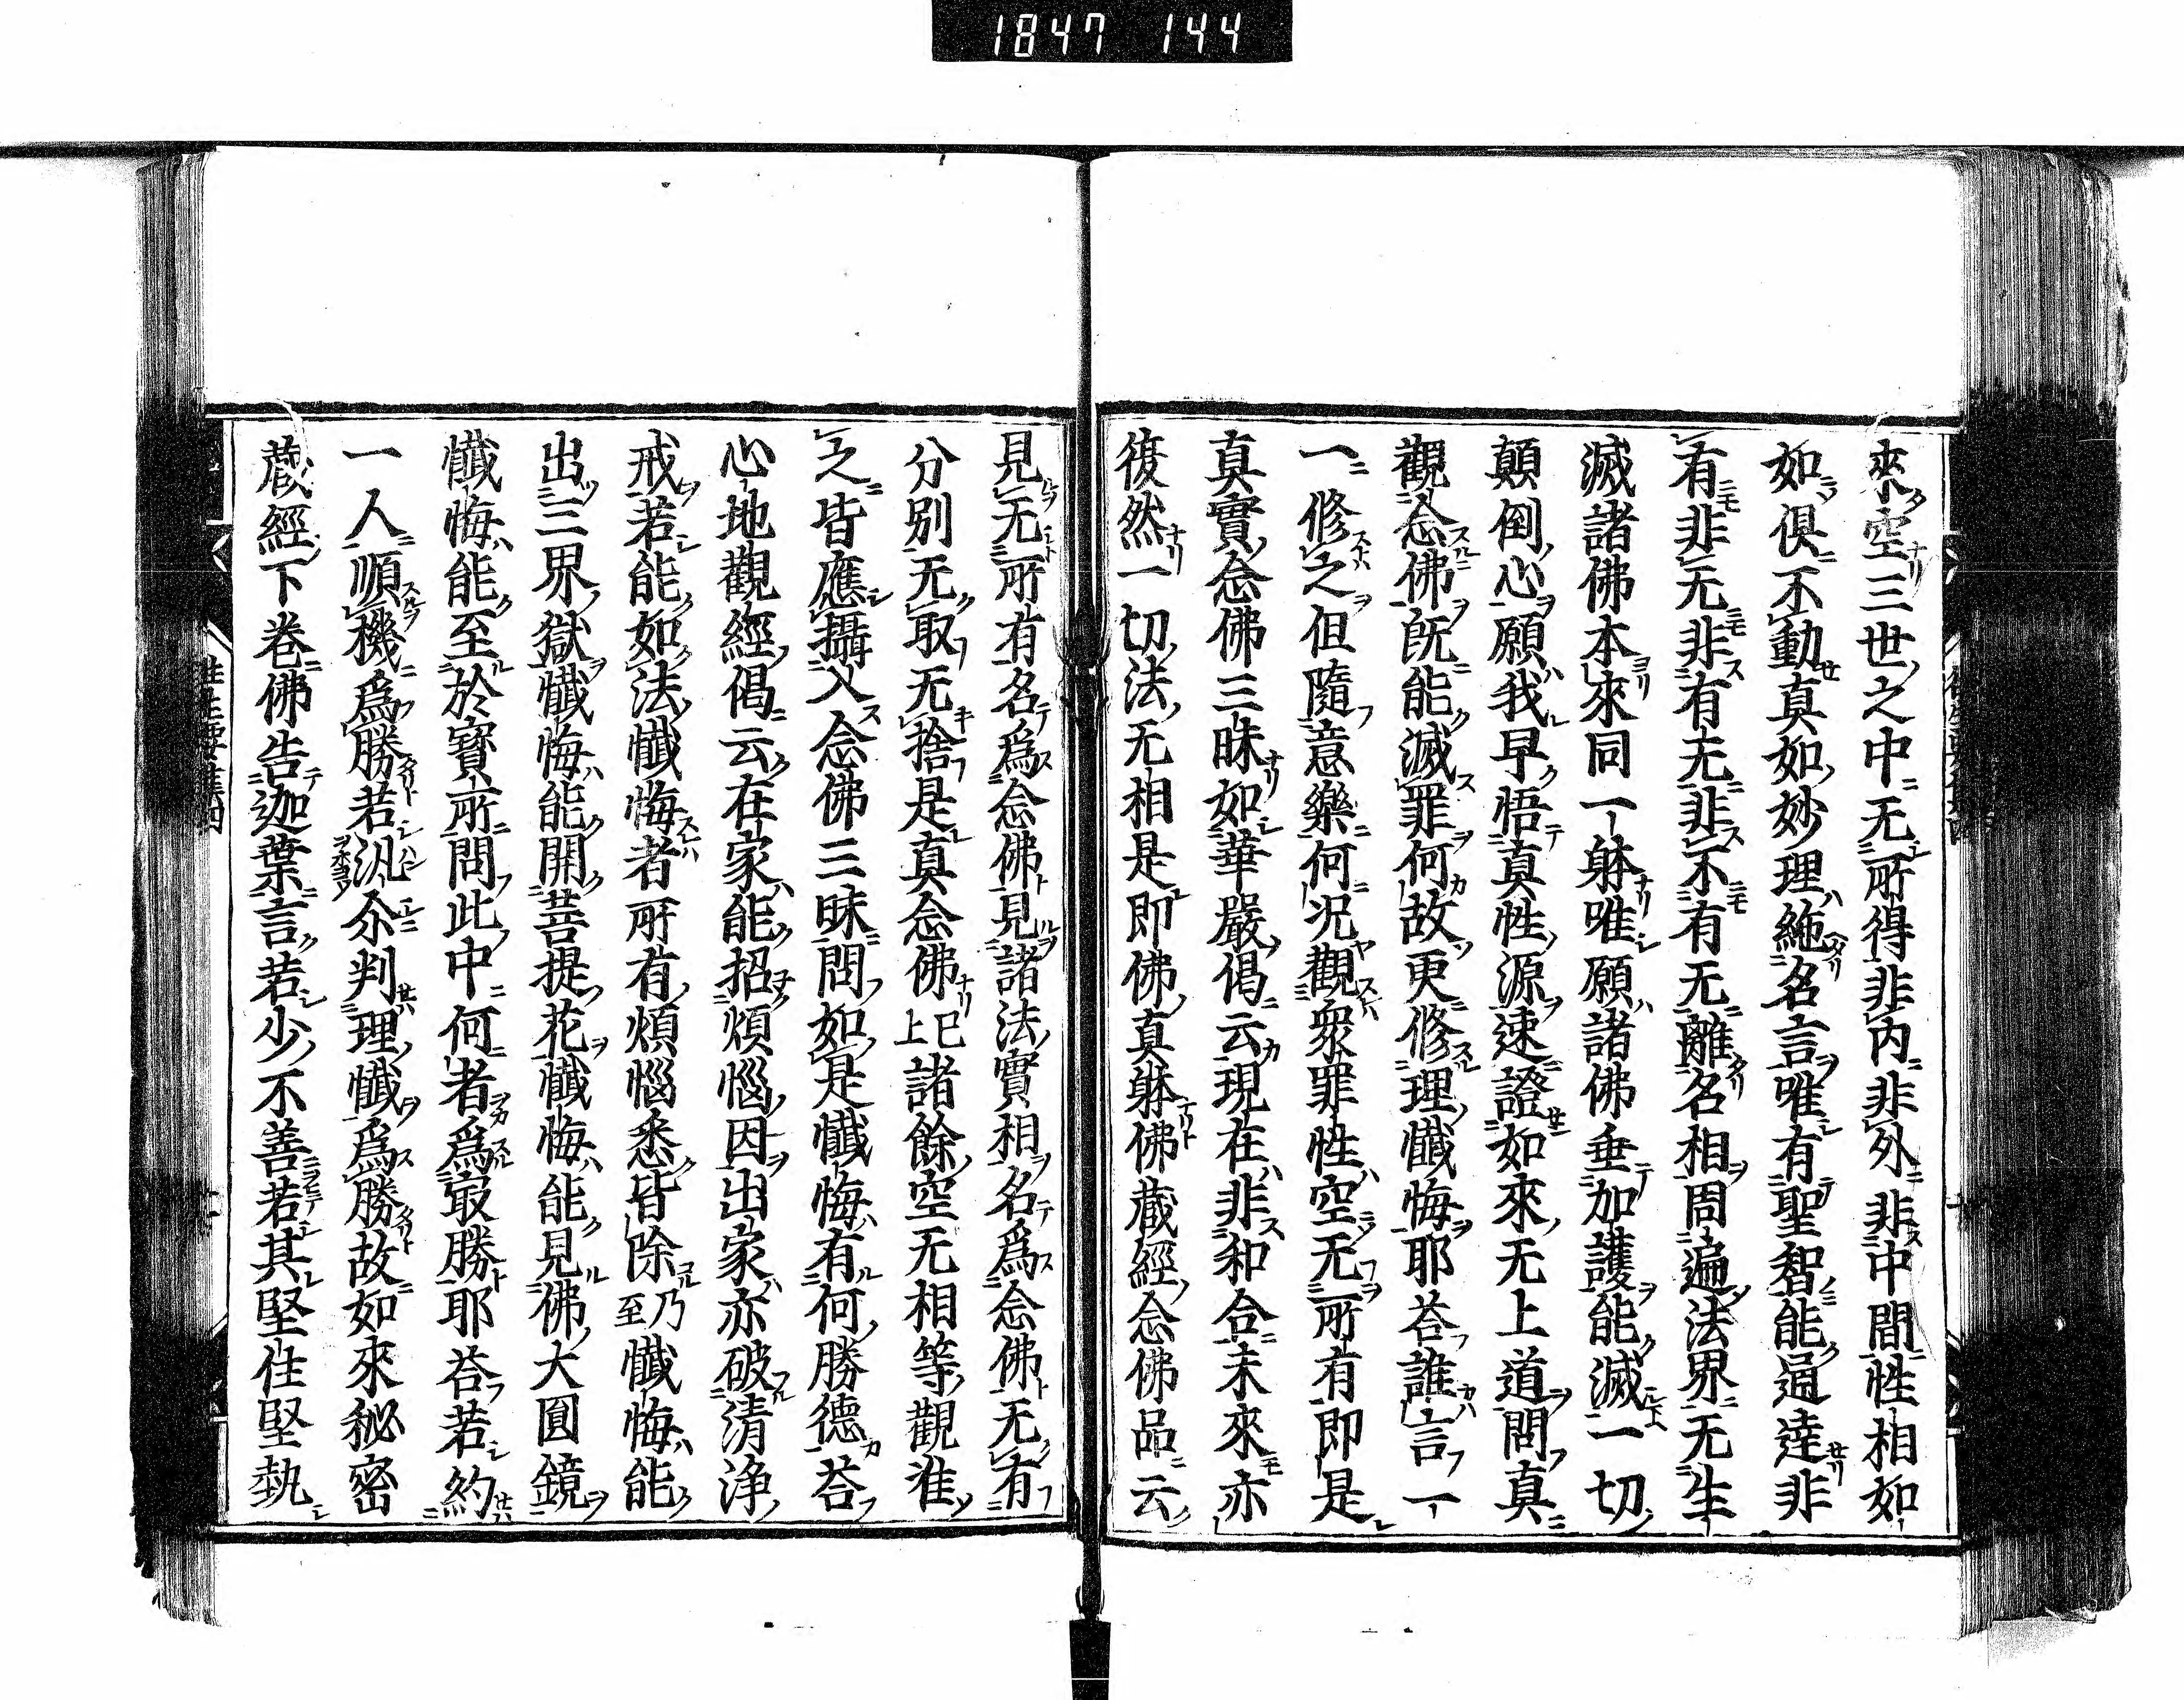 1847 144
來空三世之中无所得非内非外非中間性相如
如俱不動真如妙理絶名言唯有聖智能通達非
有非无非有无非不有无離名相周遍法界无生
滅諸佛本來同一躰唯願諸佛垂加護能滅一切
顛倒心願我早悟真性源速證如來无上道問真
觀念佛既能滅罪何故更修理懺悔耶荅誰言一
一修之但隨意樂何況觀衆罪性空无所有即是
真實念佛三昧如華嚴偈云現在非和合未來亦
復然一切法无相是即佛真躰佛藏經念佛品云
見无所有名爲念佛見諸法實相名爲念佛无有
分別无取无捨是真念佛已上諸餘空无相等觀准
之皆應攝入念佛三昧問如是懺悔有何勝德荅
心地觀經偈云在家能招煩惱因出家亦破清浄
戒若能如法懺悔者所有煩惱悉皆除乃至懺悔能
出三界獄懺悔能開菩提花懺悔能見佛大圓鏡
懺悔能至於寶所問此中何者爲冣勝耶荅若約
一人順機爲勝若汎尒判理懺爲勝故如來秘密
藏經下卷佛告迦葉言若少不善若其堅住堅執